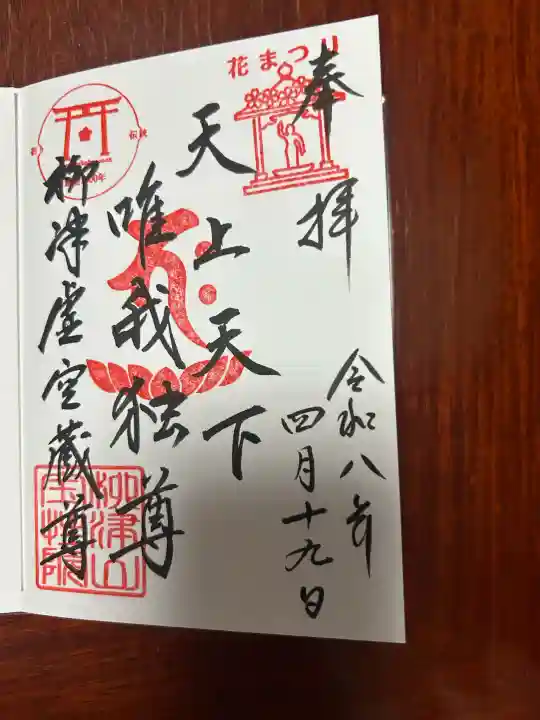 花まつり
奉拝
令和八年
四月十九日
天上天下
唯我独尊
柳津虚空蔵尊
柳津山
宝性院